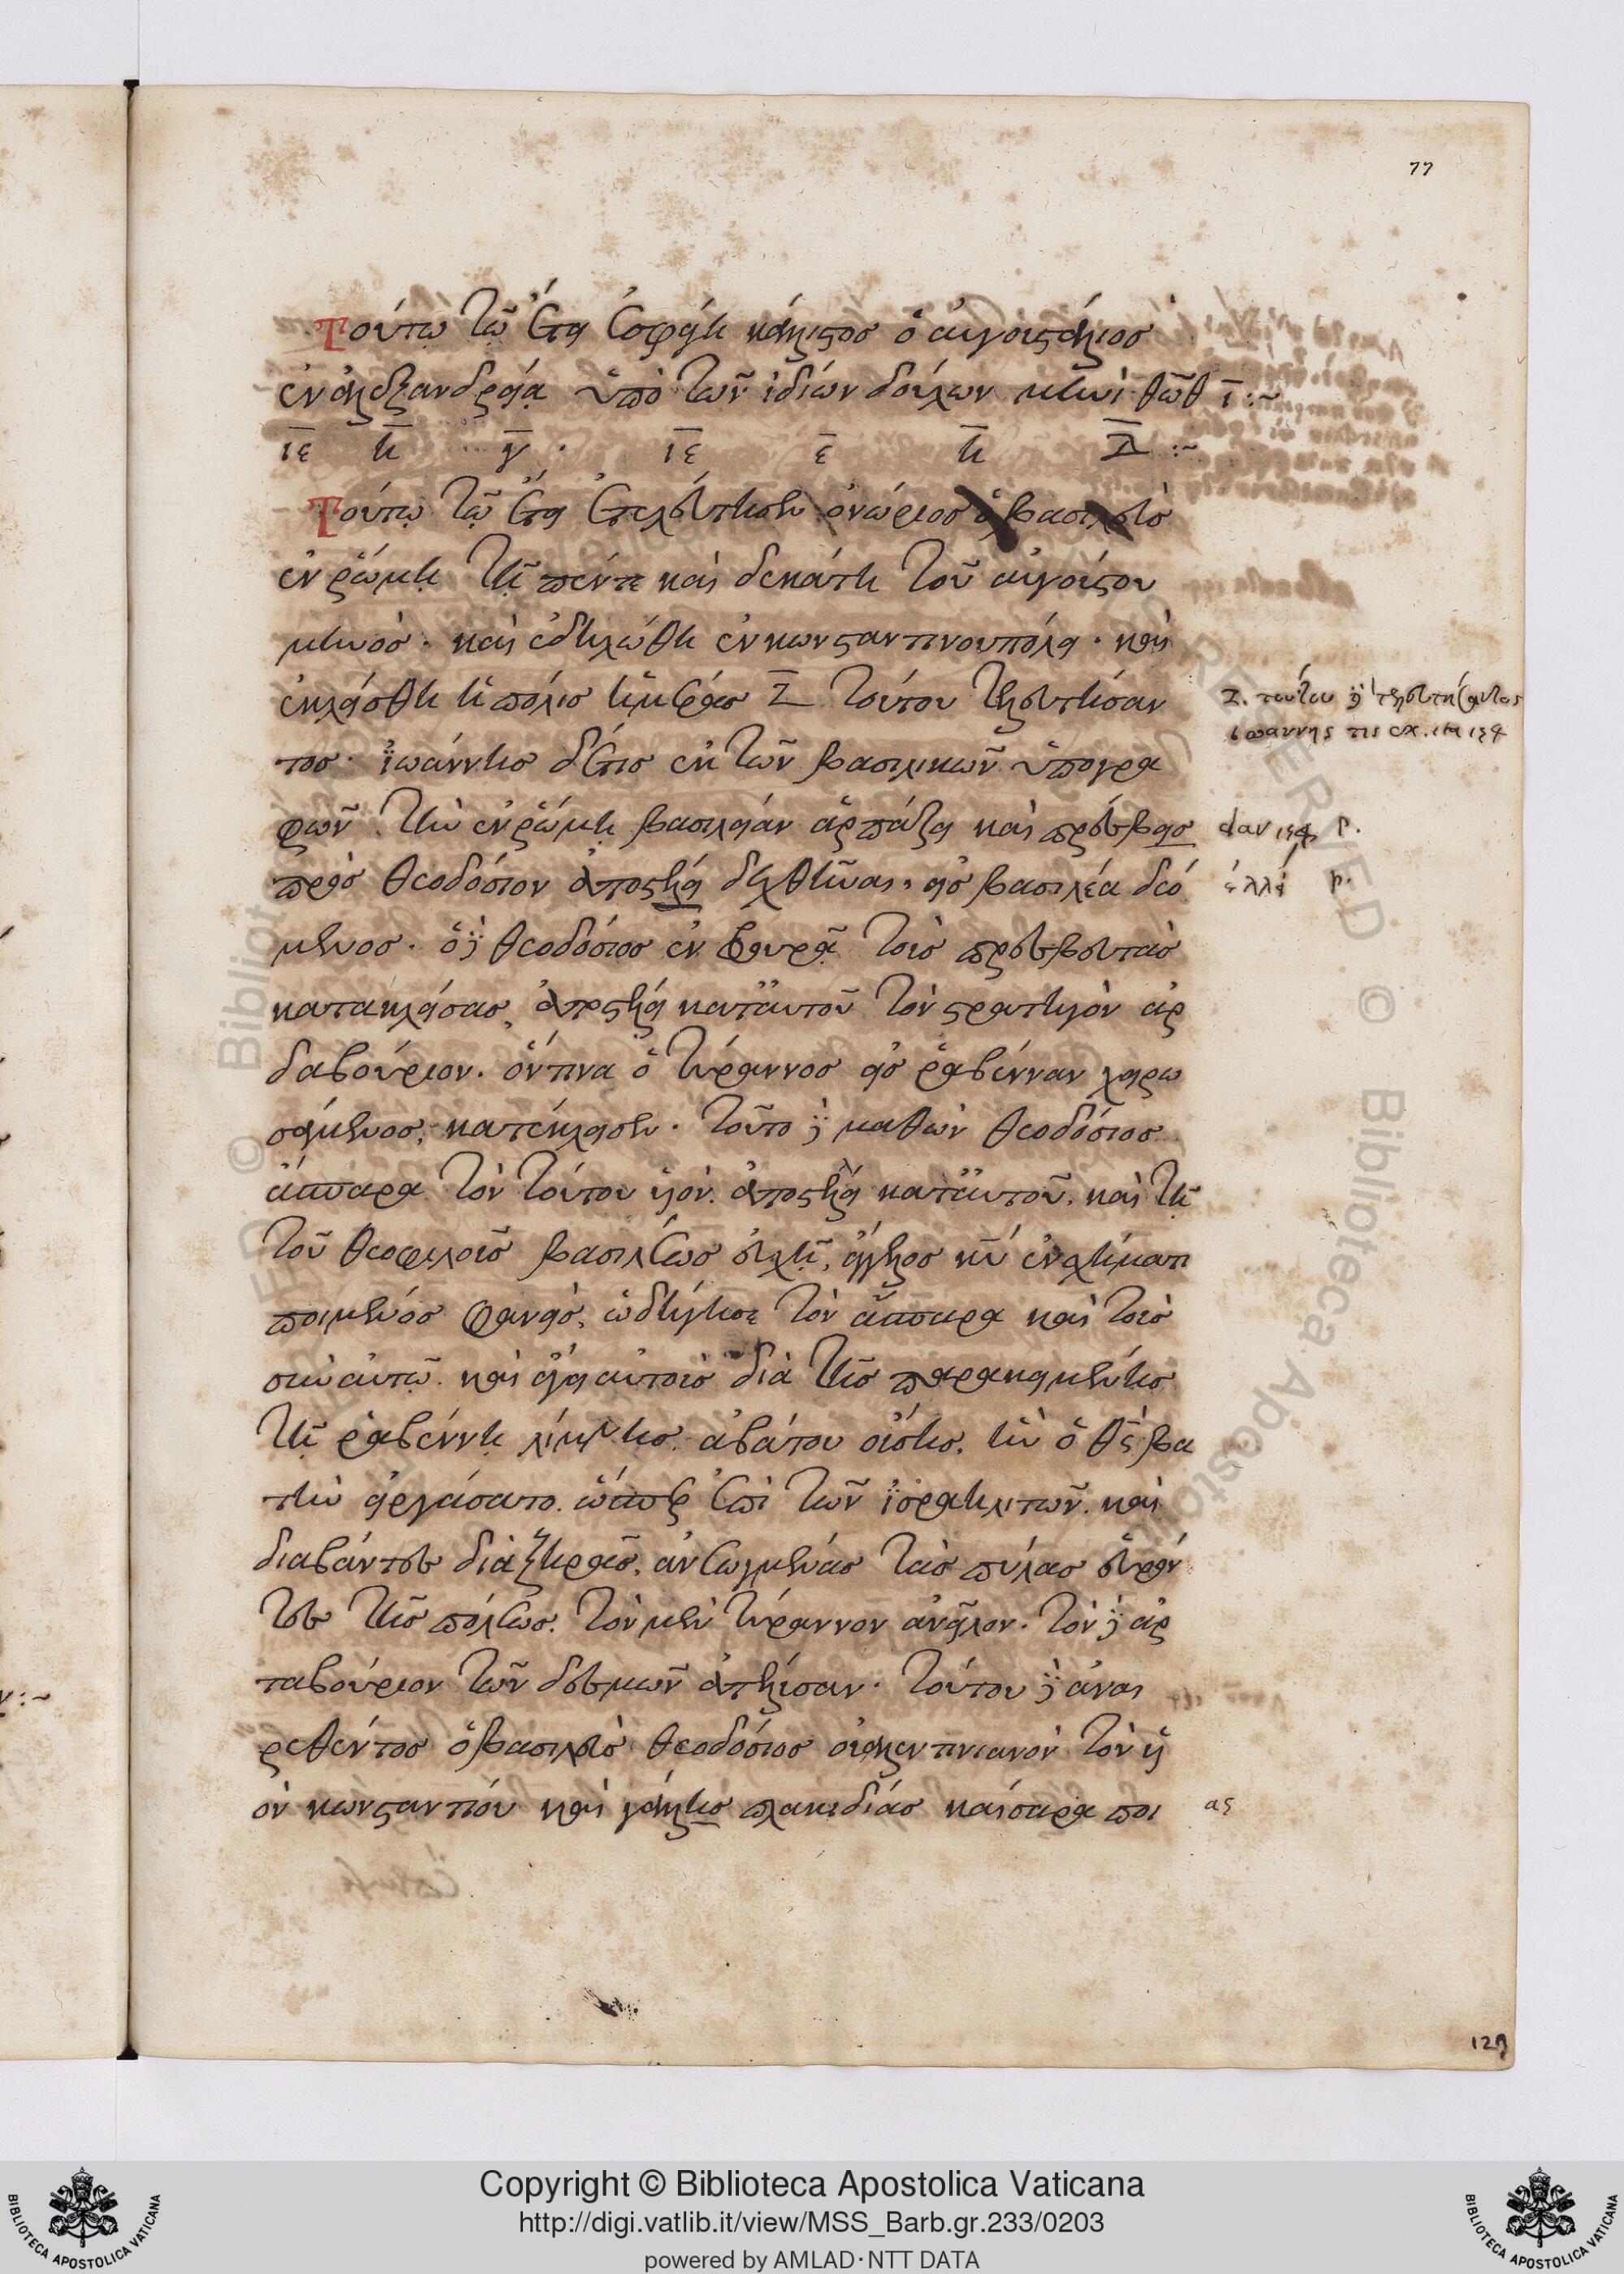 77
Τούτῳ τῷ ἔτει ἐσφάγη κάλιστος ὁ αὐγουστάλιος
ἐν ἀλεξανδρείᾳ ὑπὸ τῶν ἰδίων δούλων μηνὶ θὼθ ῑ :~
ιε η γ · ιε ε η ζ :~
Τούτῳ τῷ ἔτει ἐτελεύτησεν ὀνώριος ὁ βασιλεὺς
ἐν ῥώμῃ τῇ πέντε καὶ δεκάτῃ τοῦ αὐγούστου
μηνός · καὶ ἐδηλώθη ἐν κωνσταντινουπόλει · καὶ
ἐκλείσθη ἡ πόλις ἡμέρας ζ τούτου τελευτήσαν
τος · ἰωάννης δέ τις ἐκ τῶν βασιλικῶν ὑπογρα
φῶν τὴν ἐν ῥώμῃ βασιλείαν ἁρπάζει καὶ πρέσβεις
πρὸς θεοδόσιον ἀποστέλλει δεχθῆναι, εἰς βασιλέα δεό
μενος · ὁ δὲ θεοδόσιος ἐν φρουρᾷ τοὺς πρεσβευτὰς
κατακλείσας, ἀποστέλλει κατ' αὐτοῦ τὸν στρατηγὸν ἀρ
δαβούριον · ὅντινα ὁ τύραννος εἰς ῥαβένναν χειρω
σάμενος, κατέκλεισεν · τοῦτο δὲ μαθὼν θεοδόσιος
ἄσπαρα τὸν τούτου υἱὸν ἀποστέλλει κατ' αὐτοῦ, καὶ τῇ
τοῦ θεοφιλοῦς βασιλέως εὐχῇ, ἄγγελος κυ ἐν σχήματι
ποιμένος φανείς, ὡδήγησε τὸν ἄσπαρα καὶ τοὺς
σὺν αὐτῷ καὶ ἄγει αὐτοὺς διὰ τῆς παρακειμένης
τῇ ῥαβέννῃ λίμνης ἀβάτου οὔσης, ἣν ὁ θς βα
τὴν εἰργάσατο ὥσπερ ἐπὶ τῶν ἰσραηλιτῶν καὶ
διαβάντες διὰ ξηρᾶς, ἀνεωγμένας τὰς πύλας εὑρόν
τες τῆς πόλεως, τὸν μὲν τύραννον ἀνεῖλον · τὸν δὲ ἀρ
ταβούριον τῶν δεσμῶν ἀπέλυσαν · τούτου δὲ ἀναι
ρεθέντος ὁ βασιλεὺς θεοδόσιος οὐαλεντινιανὸν τὸν υἱ
ὸν κωνσταντίου καὶ γάλλης πλακιδίας καίσαρα ποι
ζ. τούτου δὲ τελευτήσαντος
ἰωάννης τις
ας
127
Copyright © Biblioteca Apostolica Vaticana
http://digi.vatlib.it/view/MSS_Barb.gr.233/0203
powered by AMLAD·NTT DATA
BIBLIOTECA APOSTOLICA VATICANA
BIBLIOTECA APOSTOLICA VATICANA